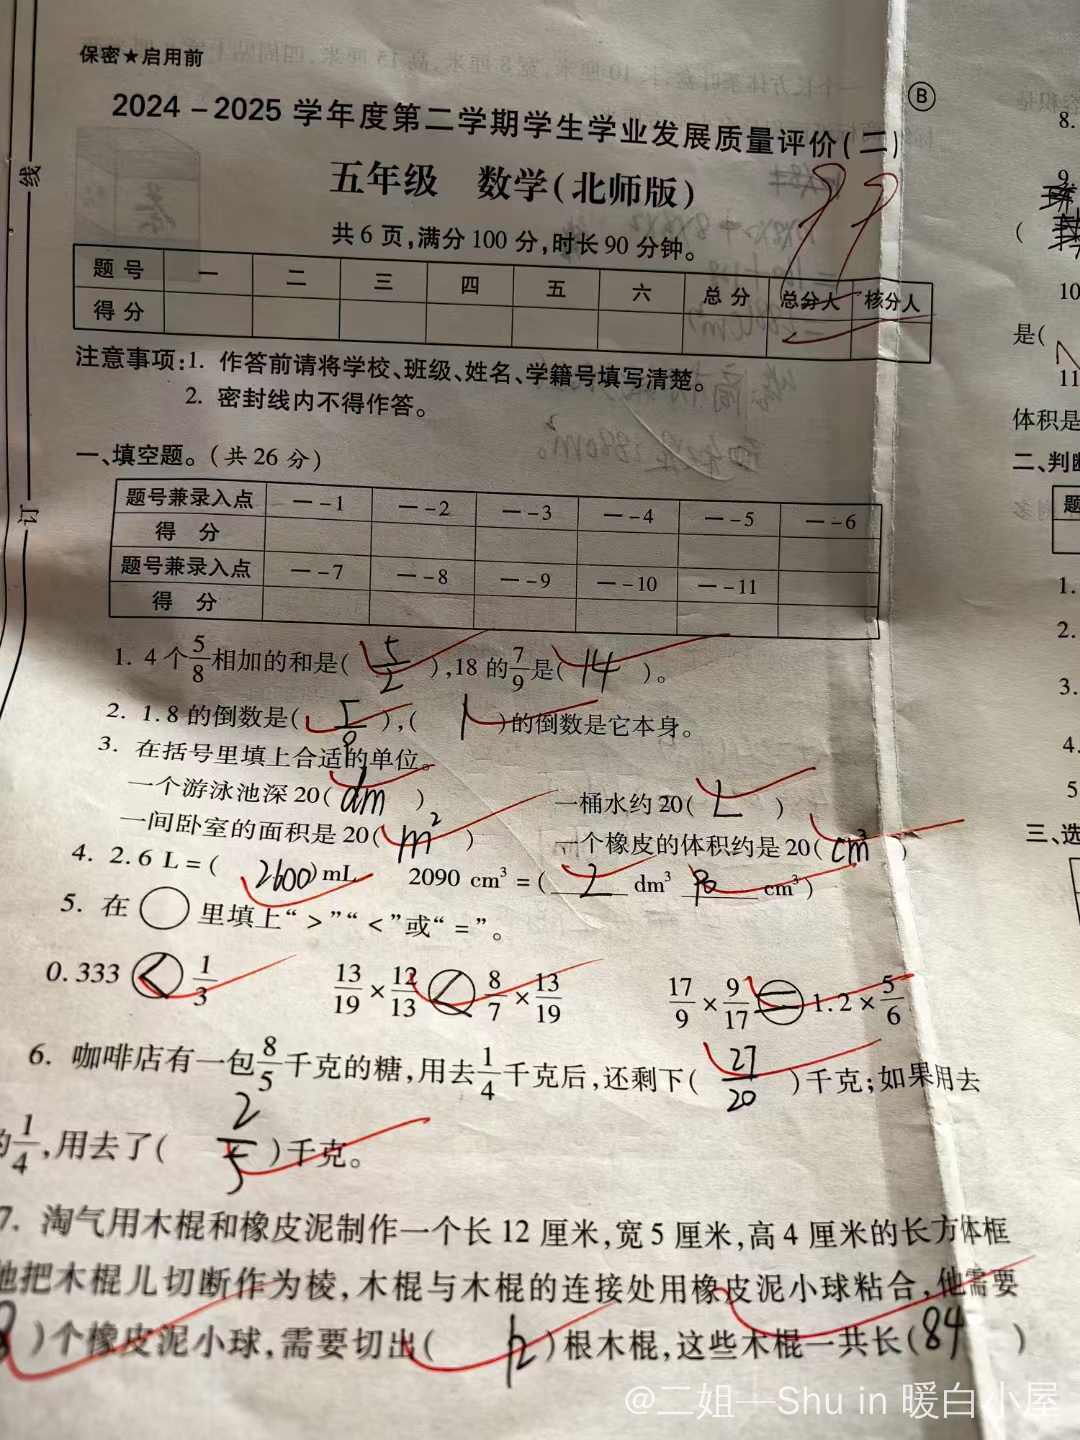 保密★启用前
Ⓑ
2024-2025学年度第二学期学生学业发展质量评价(二)
五年级 数学(北师版)
99
共6页,满分100分,时长90分钟。
题号 一 二 三 四 五 六 总分 总分人 核分人
得分
注意事项:1. 作答前请将学校、班级、姓名、学籍号填写清楚。
2. 密封线内不得作答。
线
订
一、填空题。(共26分)
题号兼录入点 一-1 一-2 一-3 一-4 一-5 一-6
得 分
题号兼录入点 一-7 一-8 一-9 一-10 一-11
得 分
1. 4个5/8相加的和是( 5/2 ),18的7/9是( 14 )。
2. 1.8的倒数是( 5/9 ),( 1 )的倒数是它本身。
3. 在括号里填上合适的单位。
一个游泳池深20( dm ) 一桶水约20( L )
一间卧室的面积是20( m² ) 一个橡皮的体积约是20( cm³ )
4. 2.6 L=( 2600 )mL 2090 cm³=( 2 dm³ 90 cm³)
5. 在○里填上“>”“<”或“=”。
0.333 < 1/3 13/19×12/13 < 8/7×13/19 17/9×9/17 = 1.2×5/6
6. 咖啡店有一包8/5千克的糖,用去1/4千克后,还剩下( 27/20 )千克;如果用去
的1/4,用去了( 2/5 )千克。
7. 淘气用木棍和橡皮泥制作一个长12厘米,宽5厘米,高4厘米的长方体框
他把木棍儿切断作为棱,木棍与木棍的连接处用橡皮泥小球粘合,他需要
)个橡皮泥小球,需要切出( 12 )根木棍,这些木棍一共长( 84 )
8.
9
(
10
是(
11
体积是
二、判断
题
1.
2.
3.
4.
5
三、选
@二姐—Shu in 暖白小屋